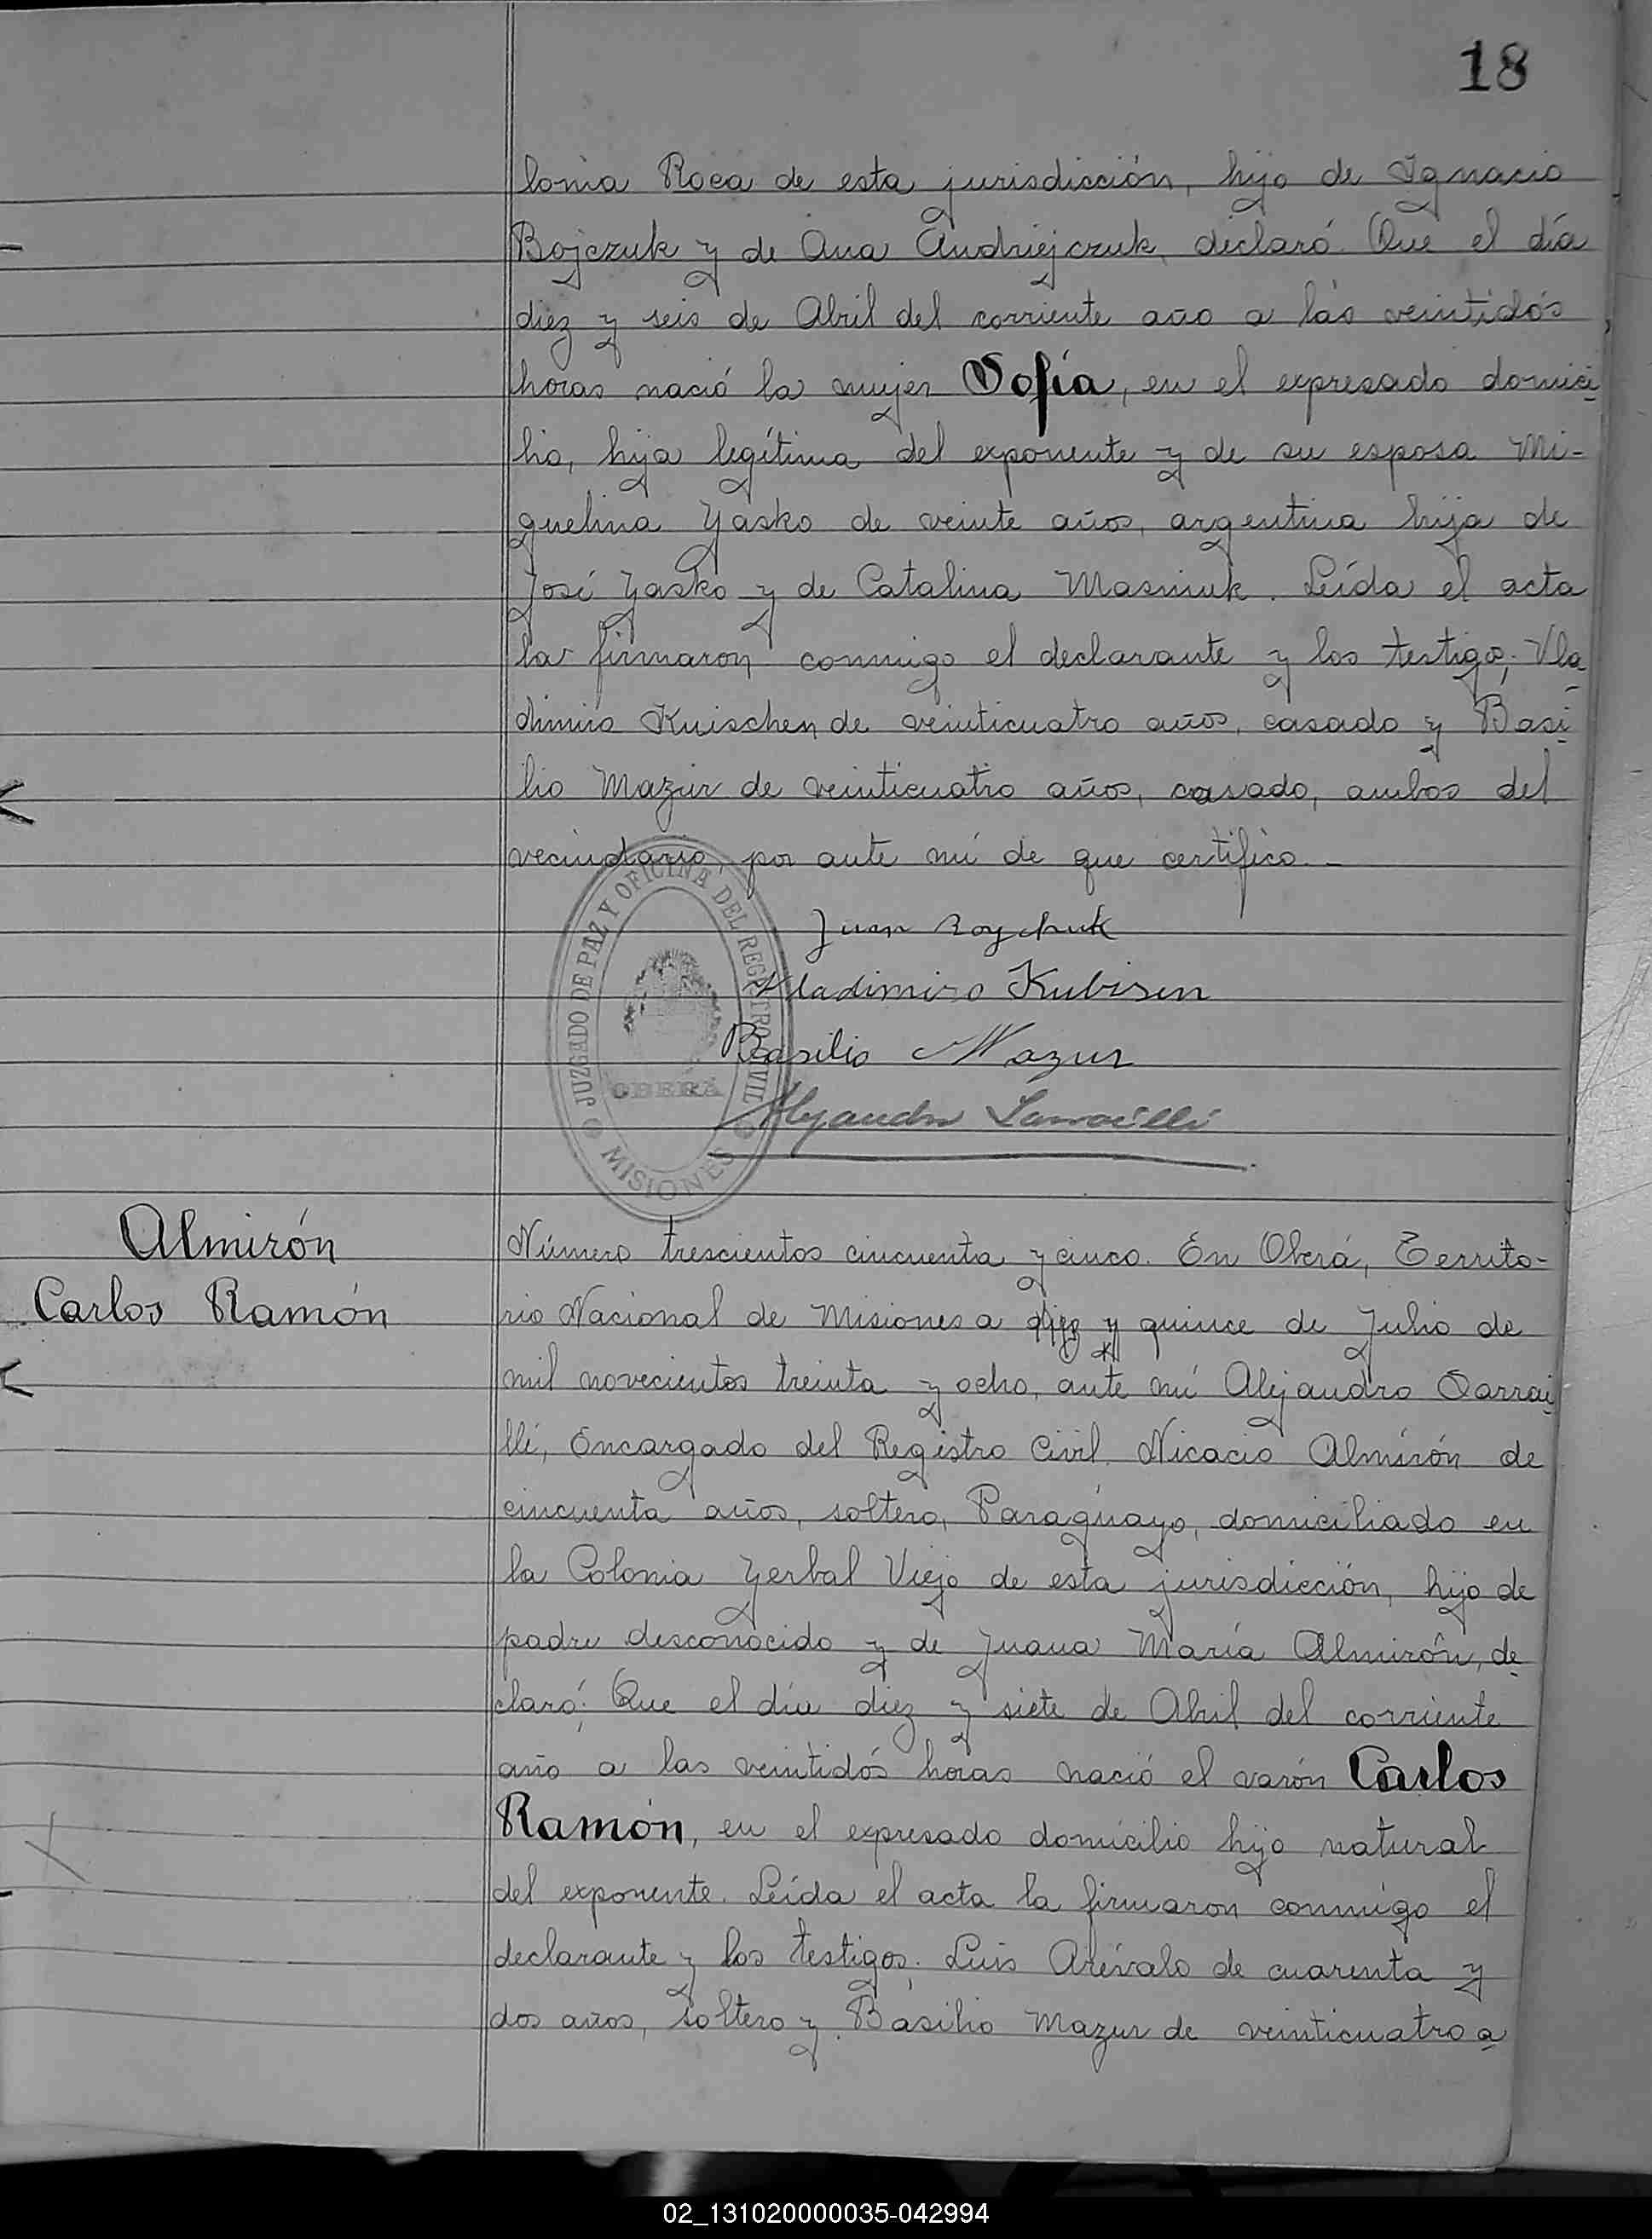 18
lonia Roca de esta jurisdicción, hijo de Ignacio
Bojczuk y de Ana Andriejczuk, declaró: Que el día
diez y seis de Abril del corriente año a las veintidós
horas nació la mujer Sofía, en el expresado domici
lio, hija legítima del exponente y de su esposa Mi-
guelina Yasko de veinte años, argentina hija de
José Yasko y de Catalina Masniuk. Leída el acta
la firmaron conmigo el declarante y los testigos; Vla
dimiro Kuischen de veinticuatro años, casado y Basi
lio Mazur de veinticuatro años, casado, ambos del
vecindario, por ante mí de que certifico.-
Juan Boychuk
Vladimiro Kubisen
Basilio Mazur
Alejandro Sarrailli
JUZGADO DE PAZ Y OFICINA DEL REGISTRO CIVIL
OBERÁ
MISIONES
Almirón
Carlos Ramón
Número trescientos cincuenta y cinco. En Oberá, Territo-
rio Nacional de Misiones a diez y quince de Julio de
mil novecientos treinta y ocho, ante mí Alejandro Sarrai
lli, Encargado del Registro Civil. Nicacio Almirón de
cincuenta años, soltero, Paraguayo, domiciliado en
la Colonia Yerbal Viejo de esta jurisdicción, hijo de
padre desconocido y de Juana María Almirón, de
claró: Que el día diez y siete de Abril del corriente
año a las veintidós horas nació el varón Carlos
Ramón, en el expresado domicilio hijo natural
del exponente. Leída el acta la firmaron conmigo el
declarante y los testigos; Luis Arévalo de cuarenta y
dos años, soltero y Basilio Mazur de veinticuatro a
02_131020000035-042994